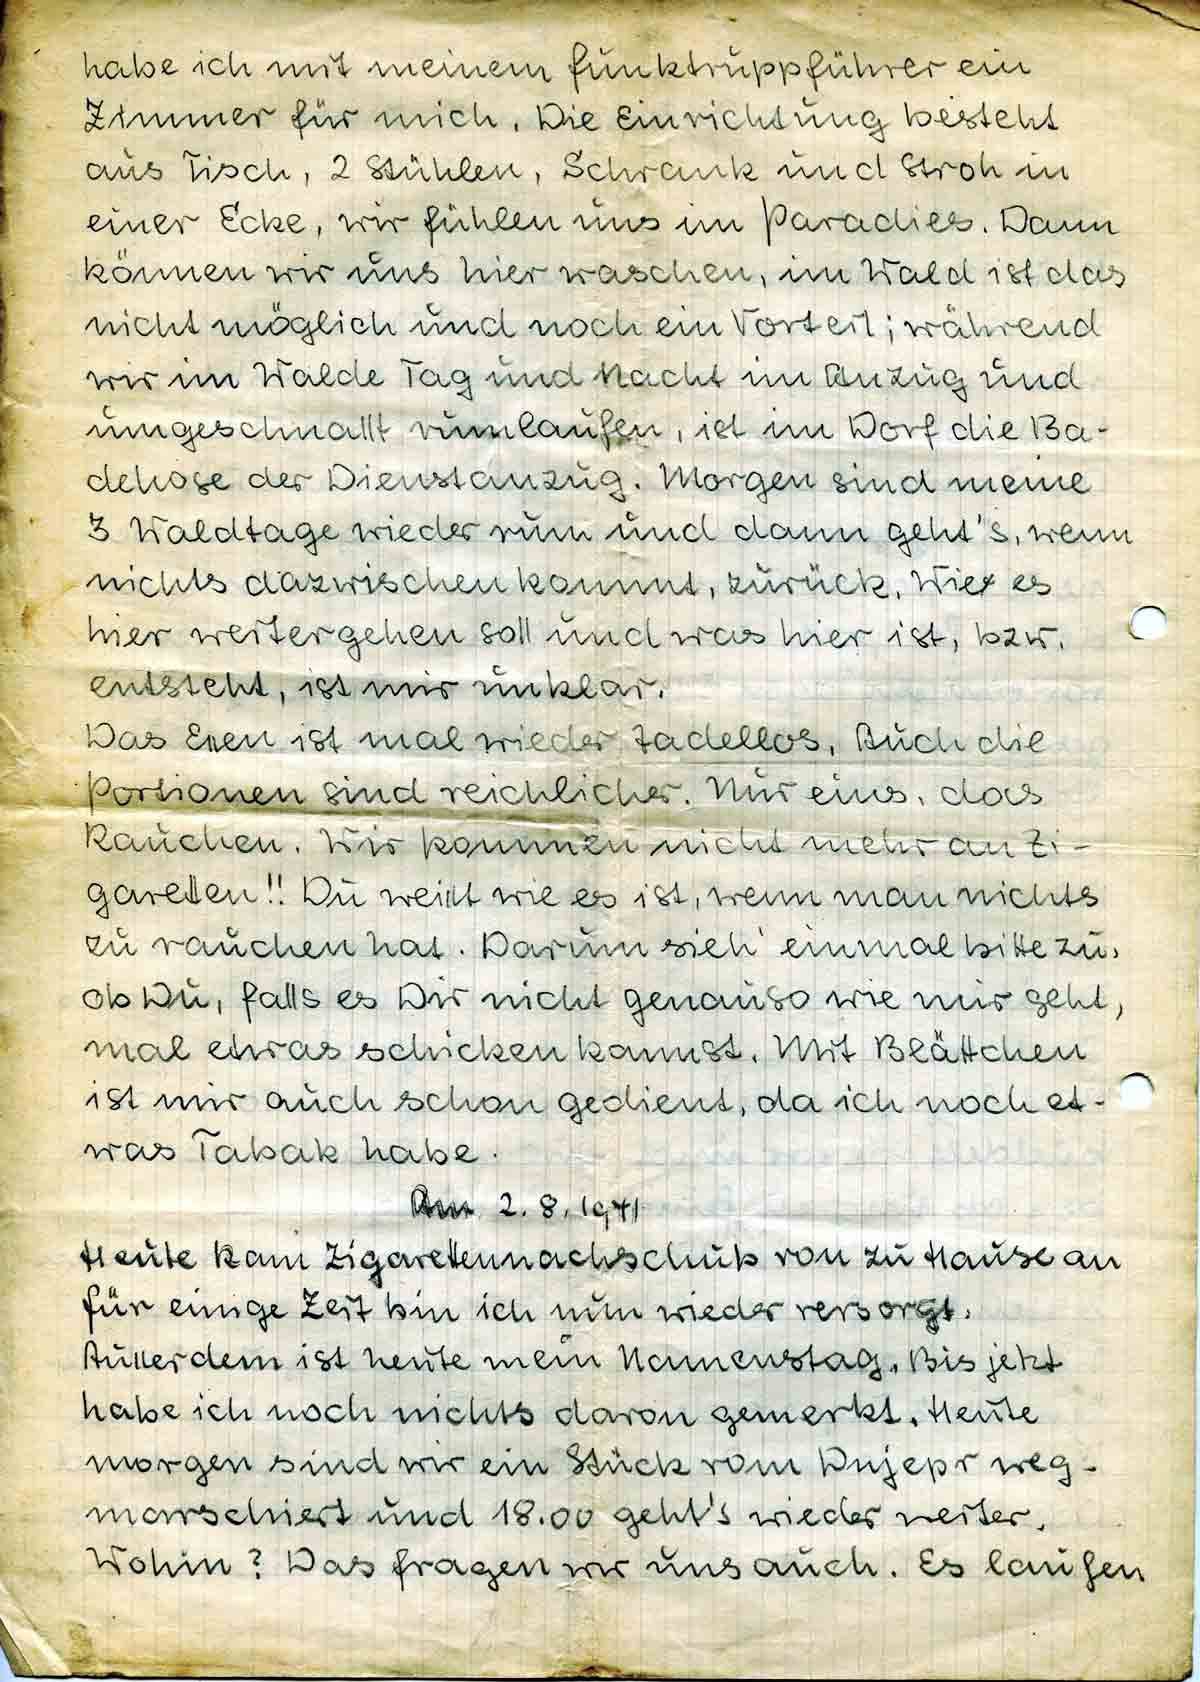 habe ich mit meinem Funktruppführer ein
Zimmer für mich. Die Einrichtung besteht
aus Tisch, 2 Stühlen, Schrank und Stroh in
einer Ecke, wir fühlen uns im Paradies. Dann
können wir uns hier waschen, im Wald ist das
nicht möglich und noch ein Vorteil; während
wir im Walde Tag und Nacht im Anzug und
umgeschnallt rumlaufen, ist im Dorf die Ba-
dehose der Dienstanzug. Morgen sind meine
3 Waldtage wieder rum und dann geht's, wenn
nichts dazwischen kommt, zurück. Wie es
hier weitergehen soll und was hier ist, bzw.
entsteht, ist mir unklar.
Das Essen ist mal wieder tadellos. Auch die
Portionen sind reichlicher. Nur eins, das
Rauchen. Wir kommen nicht mehr an Zi-
garetten!! Du weißt wie es ist, wenn man nichts
zu rauchen hat. Darum sieh' einmal bitte zu,
ob Du, falls es Dir nicht genauso wie mir geht,
mal etwas schicken kannst. Mit Blättchen
ist mir auch schon gedient, da ich noch et-
was Tabak habe.
Am 2.8.1941
Heute kam Zigarettennachschub von zu Hause an
für einige Zeit bin ich nun wieder versorgt.
Außerdem ist heute mein Namenstag. Bis jetzt
habe ich noch nichts davon gemerkt. Heute
morgen sind wir ein Stück vom Dnjepr weg-
marschiert und 18.00 geht's wieder weiter.
Wohin? Das fragen wir uns auch. Es laufen